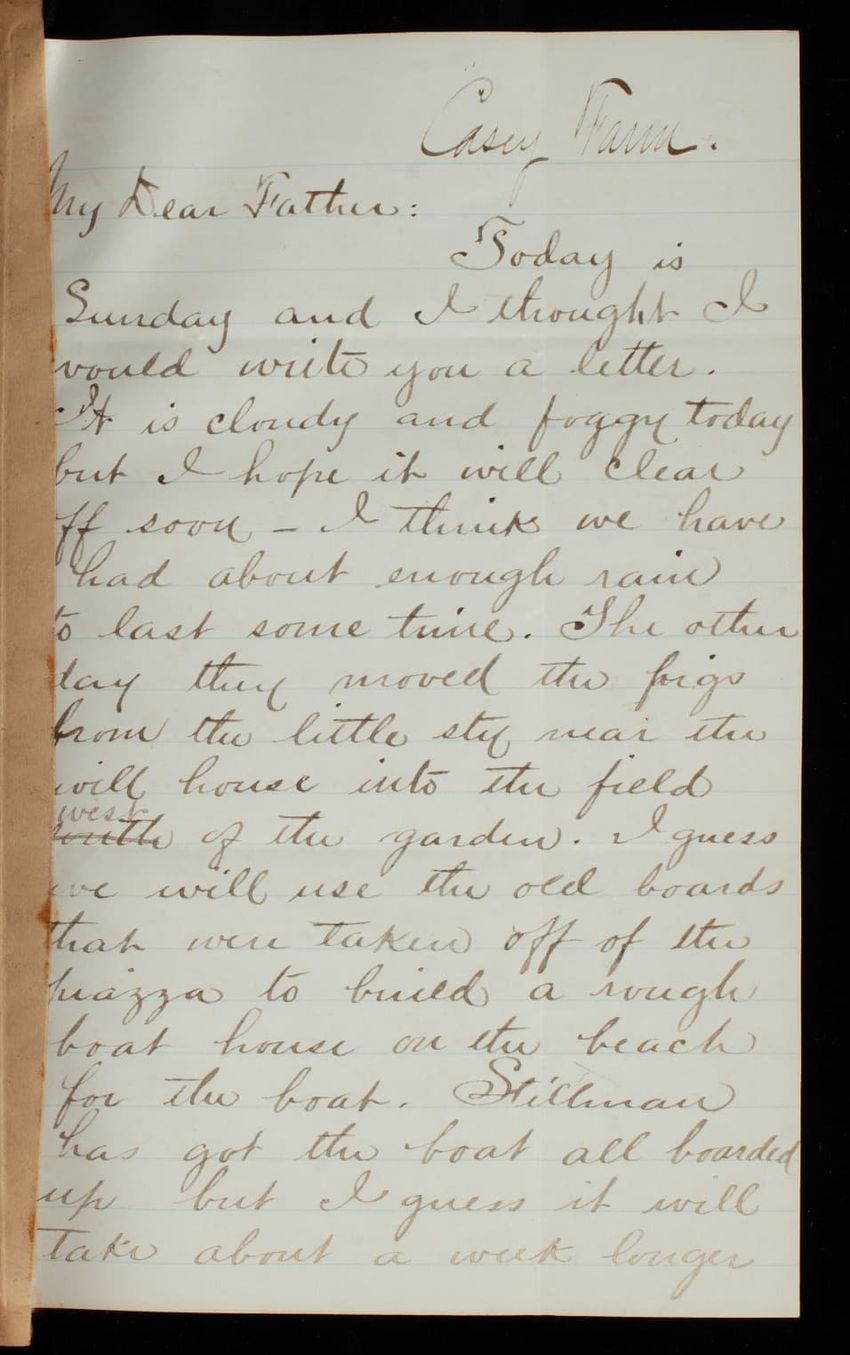 Casey Farm.
My Dear Father:
Today is
Sunday and I thought I
would write you a letter.
It is cloudy and foggy today
but I hope it will clear
off soon – I think we have
had about enough rain
to last some time. The other
day they moved the pigs
from the little sty near the
will house into the field
west
south of the garden. I guess
we will use the old boards
that were taken off of the
piazza to build a rough
boat house on the beach
for the boat. Stillman
has got the boat all boarded
up but I guess it will
take about a week longer